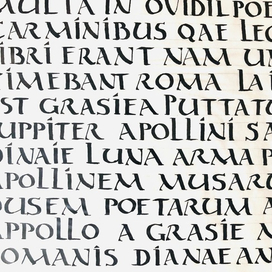 MULTA IN OVIDII POE
CARMINIBUS QAE LEG
LIBRI ERANT NAM UN
TIMEBANT ROMA LA
ST GRASIEA PUTTATO
UPPITER APOLLINI SA
DINAIE LUNA ARMA P
APOLLINEM MUSARU
OUSEM POETARUM A
APPOLLO A GRASIE
OMANIS DIANAE AN